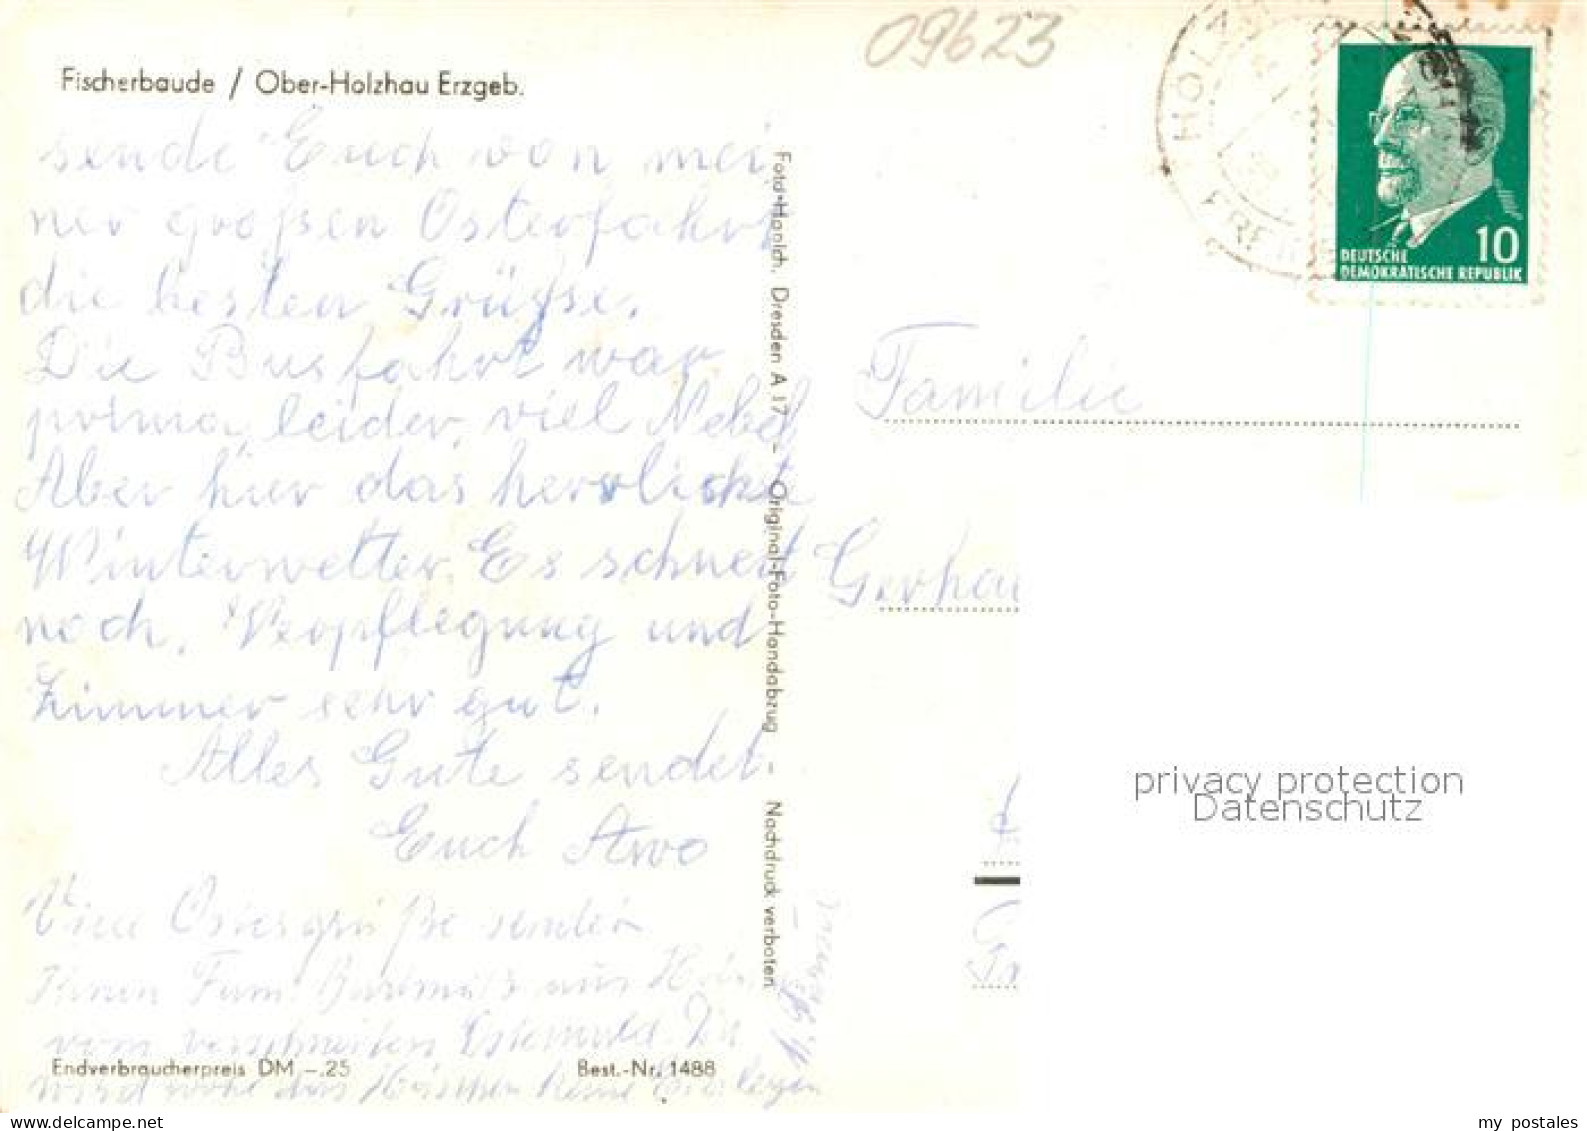 09623
Fischerbaude / Ober-Holzhau Erzgeb.
sende Euch von mei
ner großen Osterfahrt
die besten Grüße.
Die Busfahrt war
prima, leider, viel Nebel
Aber hier das herrlichste
Winterwetter. Es schneit
noch. Verpflegung und
Zimmer sehr gut.
Alles Gute sendet
Euch Awo
Viele Ostergrüße senden
Ihnen Fam. aus
vom verschneiten Osterwald.
wird wohl das Häschen keine legen
Endverbraucherpreis DM –.25 Best.-Nr. 1488
Foto-Hanich, Dresden A 17 – Original-Foto-Handabzug – Nachdruck verboten
HOLZHAU
DEUTSCHE
DEMOKRATISCHE REPUBLIK
10
Familie
Gerhar
privacy protection
Datenschutz
my postales